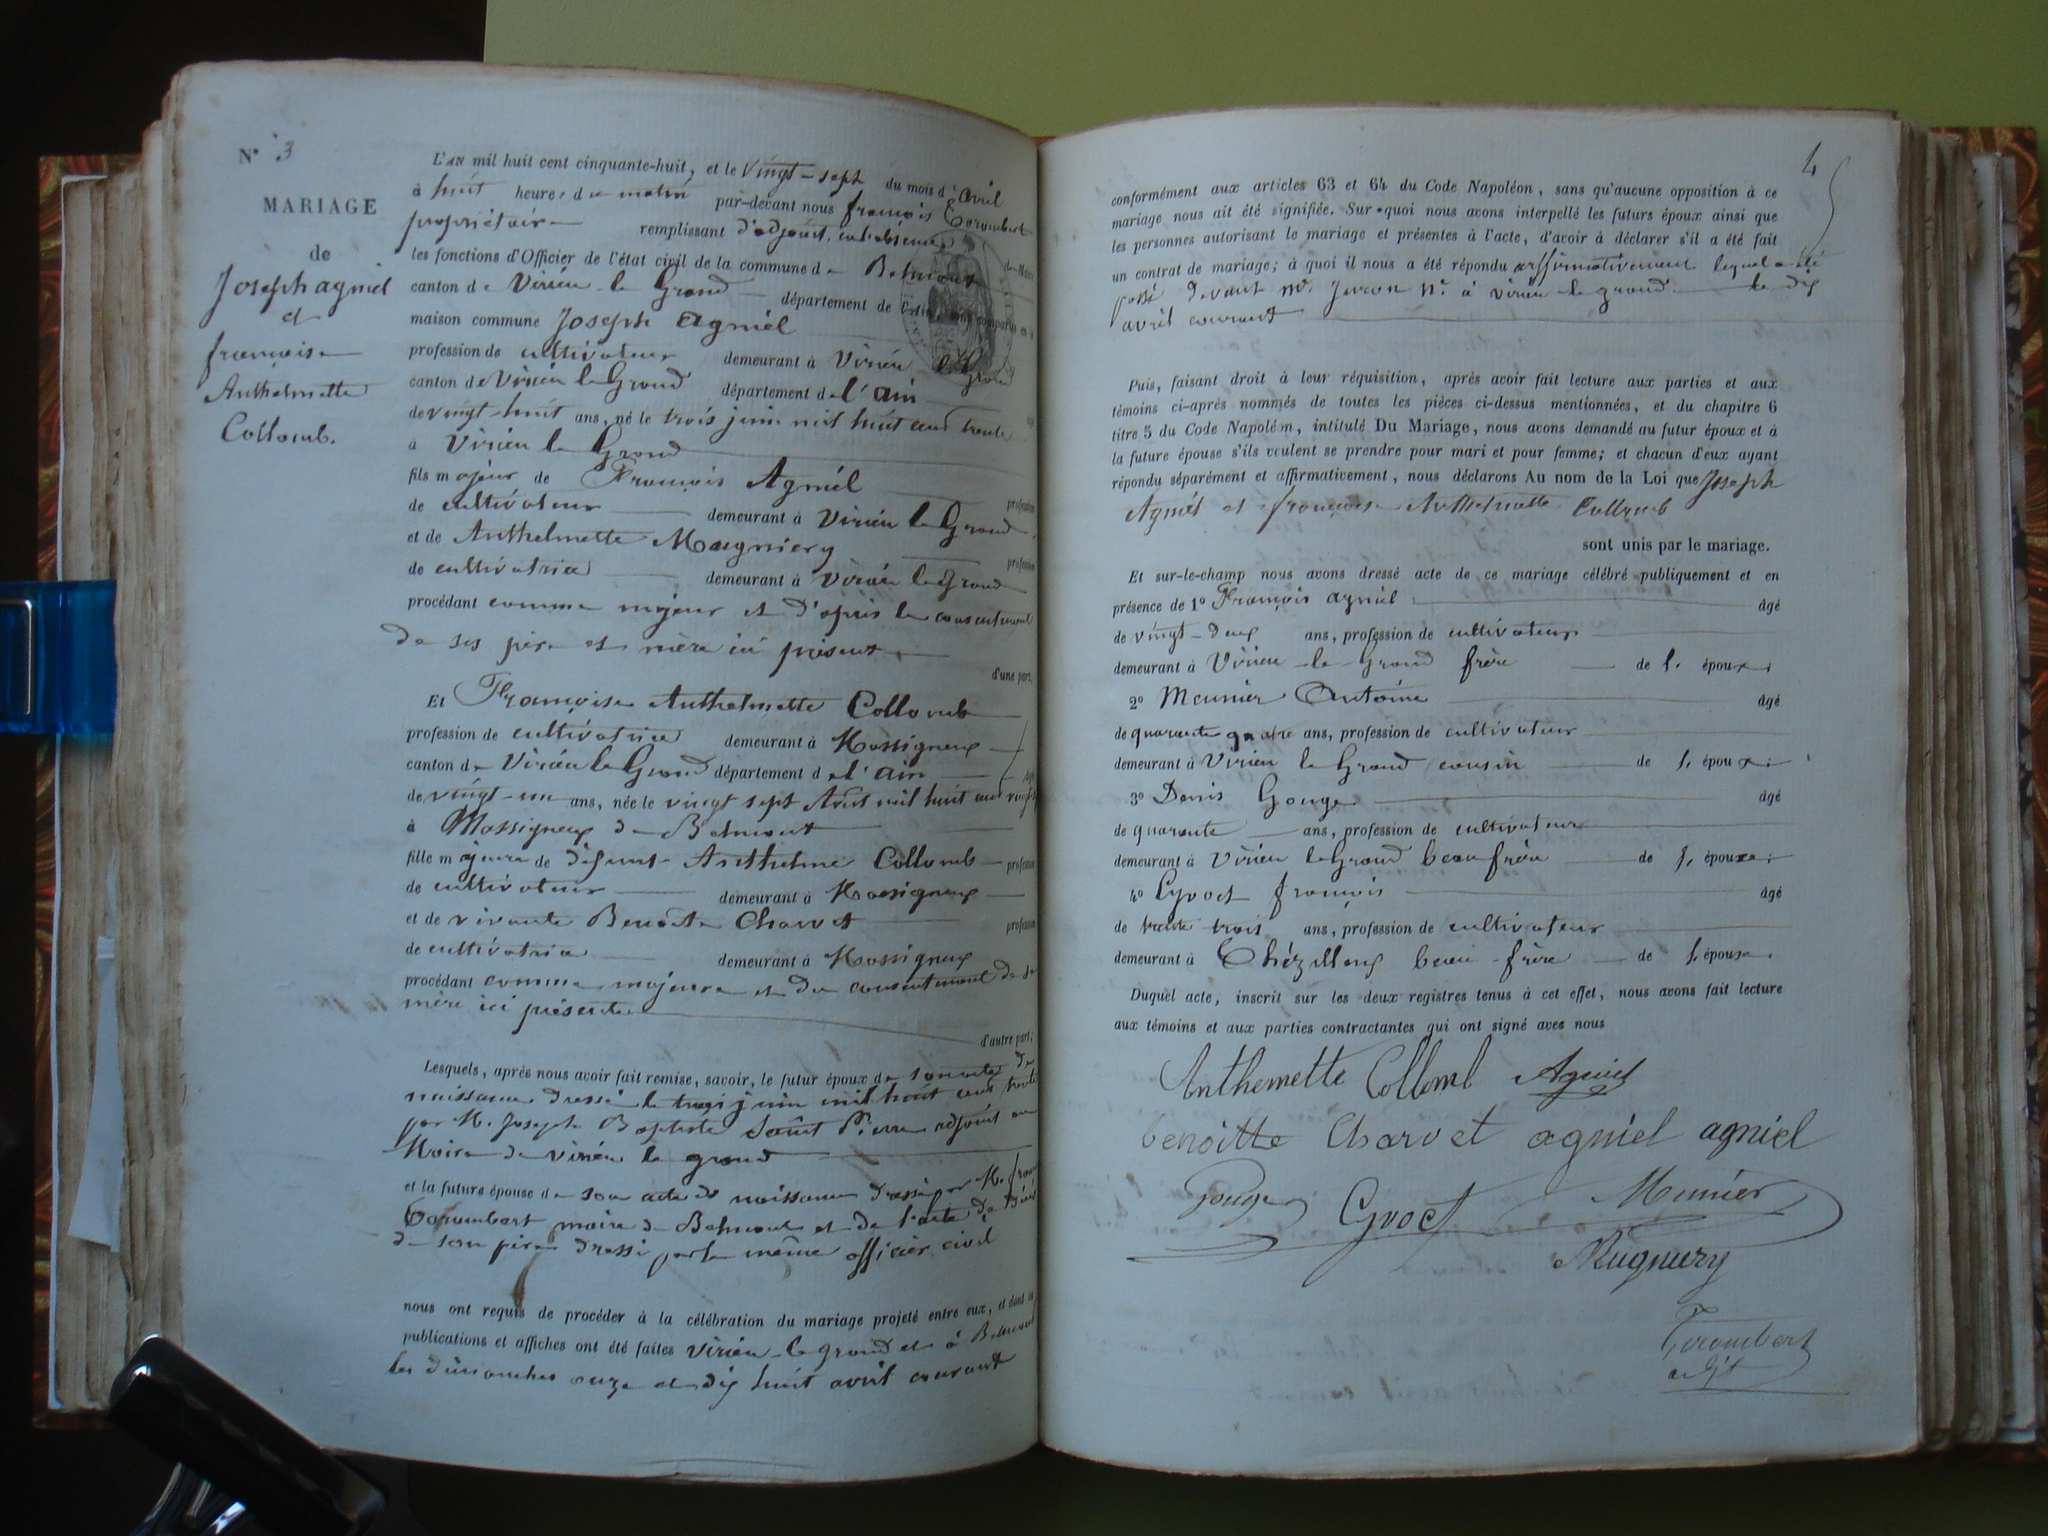 N° 3
MARIAGE
de
Joseph agniel
et
françoise
Anthelmette
Collomb.
L'AN mil huit cent cinquante-huit, et le vingt-sept du mois d'avril
à huit heures du matin par-devant nous françois Corombert
propriétaire remplissant d'adjoint, en l'absence du Maire
les fonctions d'Officier de l'état civil de la commune de Belmont
canton de Virieu le Grand département de l'Ain, ont comparu en la
maison commune Joseph Agniel
profession de cultivateur demeurant à Virieu le Grand
canton de Virieu le Grand département de l'ain
de vingt-huit ans, né le trois juin mil huit cent trente
à Virieu le Grand
fils majeur de François Agniel profession
de cultivateur demeurant à Virieu le Grand
et de Anthelmette Mugniery profession
de cultivatrice demeurant à Virieu le Grand
procédant comme majeur et d'après le consentement
de ses père et mère ici présents
d'une part,
Et Françoise Anthelmette Collomb
profession de cultivatrice demeurant à Massigneux
canton de Virieu le Grand département de l'ain
de vingt-un ans, née le vingt sept Avril mil huit cent
à Massigneux de Belmont
fille majeure de défunt Anthelme Collomb profession
de cultivateur demeurant à Massigneux
et de vivante Benoite Charvet profession
de cultivatrice demeurant à Massigneux
procédant comme majeure et du consentement de sa
mère ici présente
d'autre part,
Lesquels, après nous avoir fait remise, savoir, le futur époux de son acte de
naissance dressé le trois juin mil huit cent trente
par M. Joseph Baptiste Saint Pierre adjoint au
Maire de virieu le grand
et la future épouse de son acte de naissance dressé par M. franç
Corombert maire de Belmont et de l'acte de Décès
de son père dressé par le même officier civil
nous ont requis de procéder à la célébration du mariage projeté entre eux, et dont les
publications et affiches ont été faites virieu-le grand et à Belmont
les dimanches onze et dix huit avril courant
4
conformément aux articles 63 et 64 du Code Napoléon, sans qu'aucune opposition à ce
mariage nous ait été signifiée. Sur quoi nous avons interpellé les futurs époux ainsi que
les personnes autorisant le mariage et présentes à l'acte, d'avoir à déclarer s'il a été fait
un contrat de mariage; à quoi il nous a été répondu affirmativement lequel a été
passé devant Me Juron Nre à virieu le grand le dix
avril courant
Puis, faisant droit à leur réquisition, après avoir fait lecture aux parties et aux
témoins ci-après nommés de toutes les pièces ci-dessus mentionnées, et du chapitre 6
titre 5 du Code Napoléon, intitulé Du Mariage, nous avons demandé au futur époux et à
la future épouse s'ils veulent se prendre pour mari et pour femme; et chacun d'eux ayant
répondu séparément et affirmativement, nous déclarons Au nom de la Loi que Joseph
Agniel et françoise Anthelmette Collomb
sont unis par le mariage.
Et sur-le-champ nous avons dressé acte de ce mariage célébré publiquement et en
présence de 1° François agniel âgé
de vingt-deux ans, profession de cultivateur
demeurant à Virieu-le Grand frère de l. époux;
2° Meunier Antoine âgé
de quarante quatre ans, profession de cultivateur
demeurant à Virieu le Grand cousin de l. époux;
3° Denis Gouge âgé
de quarante ans, profession de cultivateur
demeurant à Virieu le Grand beau frère de l. épouse;
4° Cyvoct françois âgé
de trente trois ans, profession de cultivateur
demeurant à Chézillieux beau-frère de l. épouse
Duquel acte, inscrit sur les deux registres tenus à cet effet, nous avons fait lecture
aux témoins et aux parties contractantes qui ont signé avec nous
Anthemette Collomb Agniel
benoitte Charvet agniel agniel
Gouge Cyvoct Meunier
Mugniery
Corombert
adjt